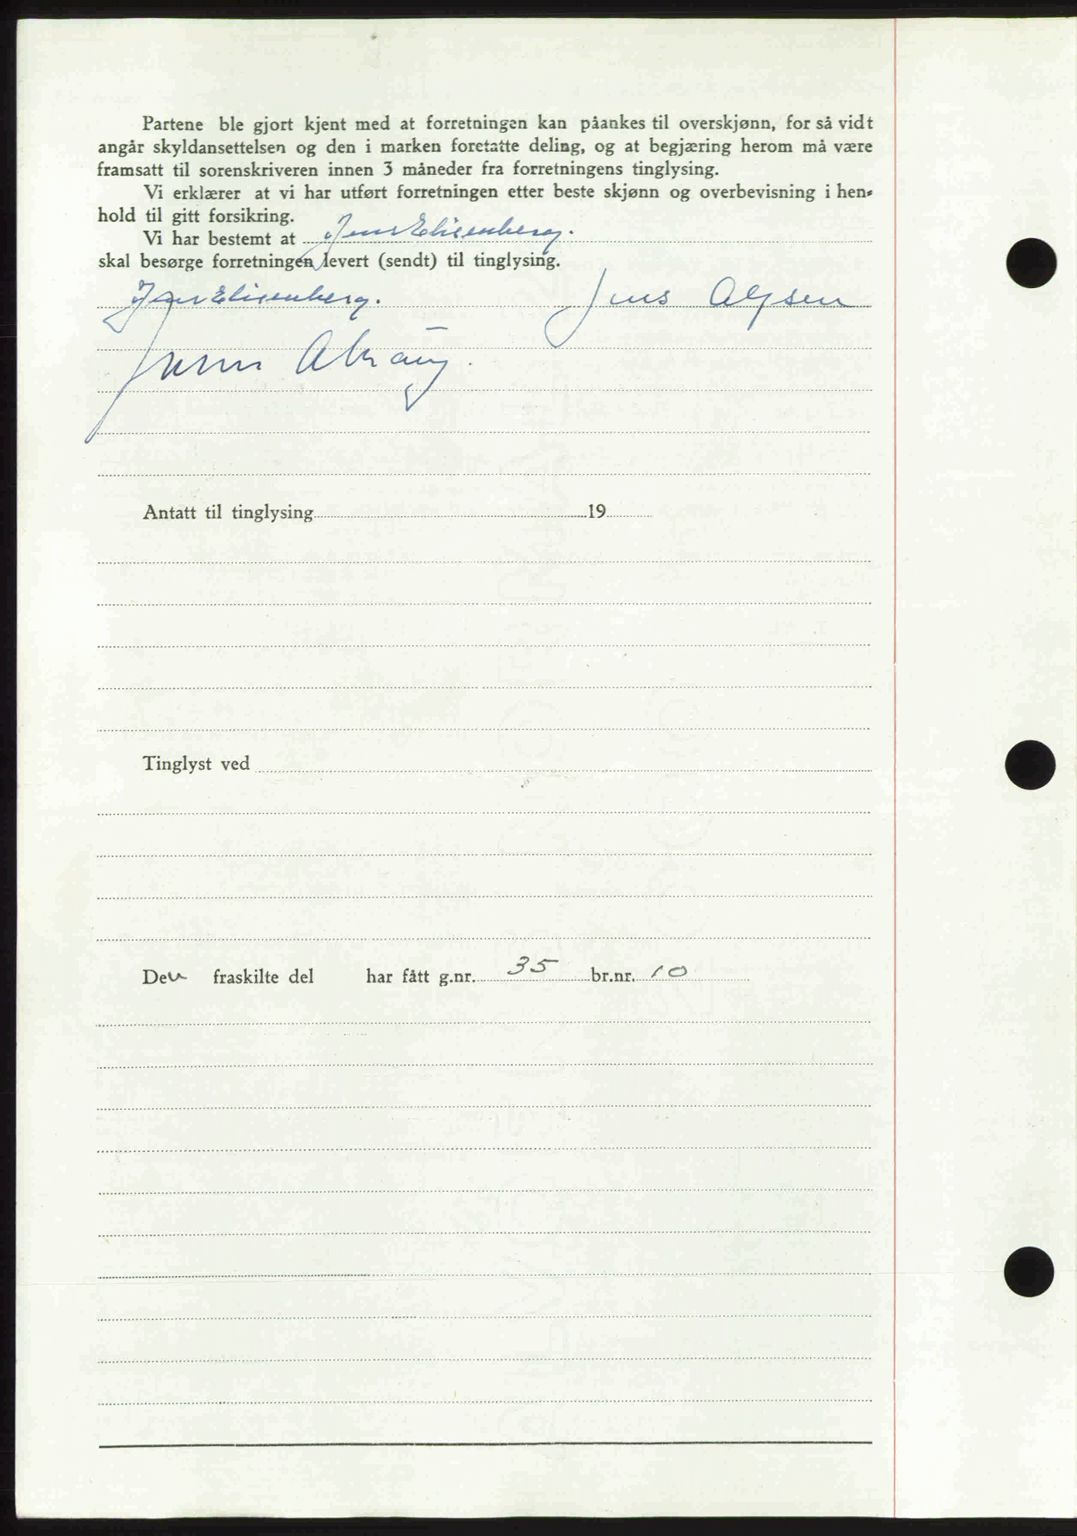 Partene ble gjort kjent med at forretningen kan påankes til overskjønn, for så vidt
angår skyldansettelsen og den i marken foretatte deling, og at begjæring herom må være
framsatt til sorenskriveren innen 3 måneder fra forretningens tinglysing.
Vi erklærer at vi har utført forretningen etter beste skjønn og overbevisning i hen-
hold til gitt forsikring.
Vi har bestemt at Jens Elisenberg.
skal besørge forretningen levert (sendt) til tinglysing.
Jens Elisenberg. Jens
Antatt til tinglysing 19
Tinglyst ved
Den fraskilte del har fått g.nr. 35 br.nr. 10